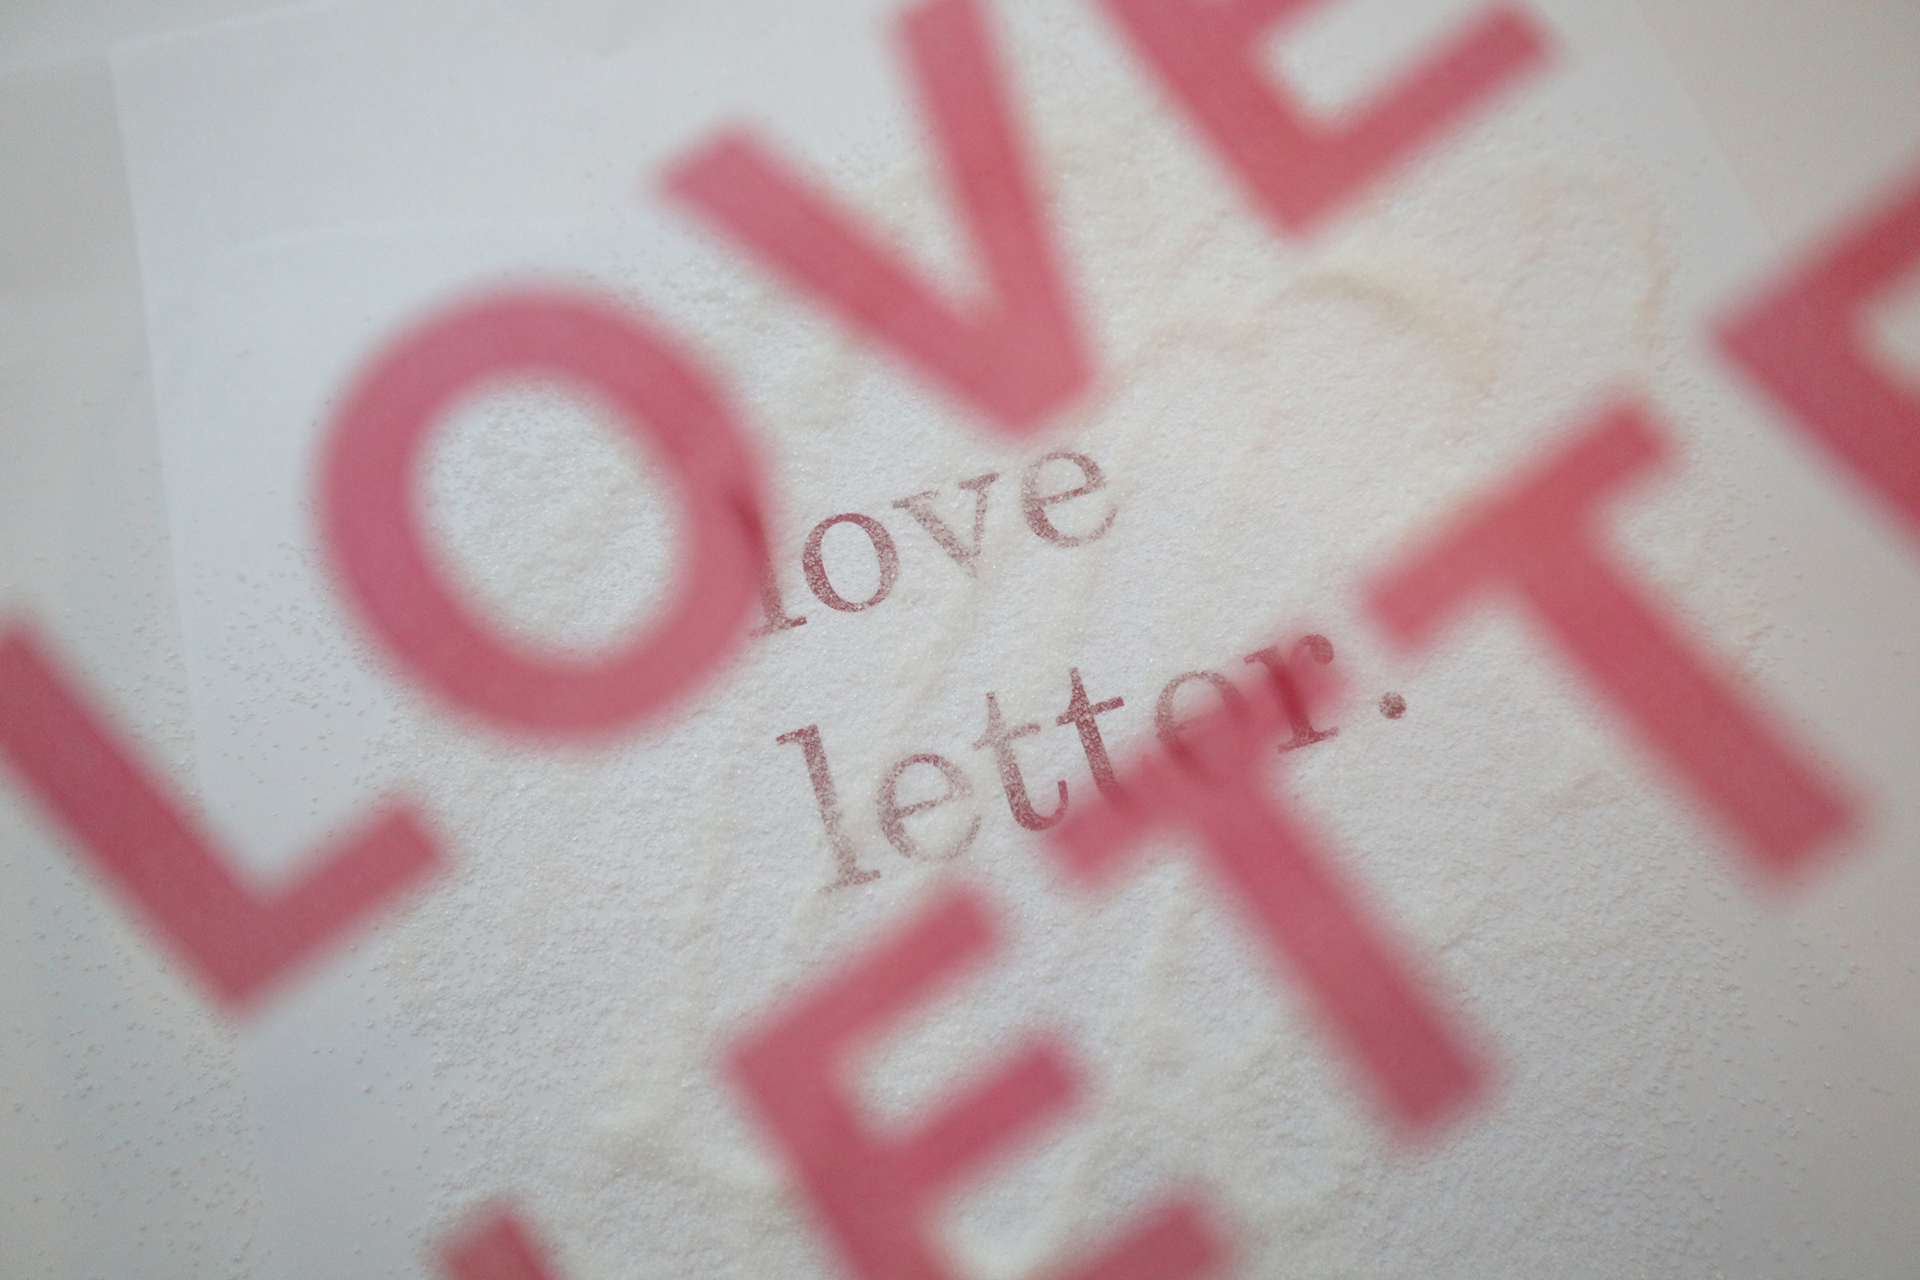 LOVE
LETTE
love
letter.